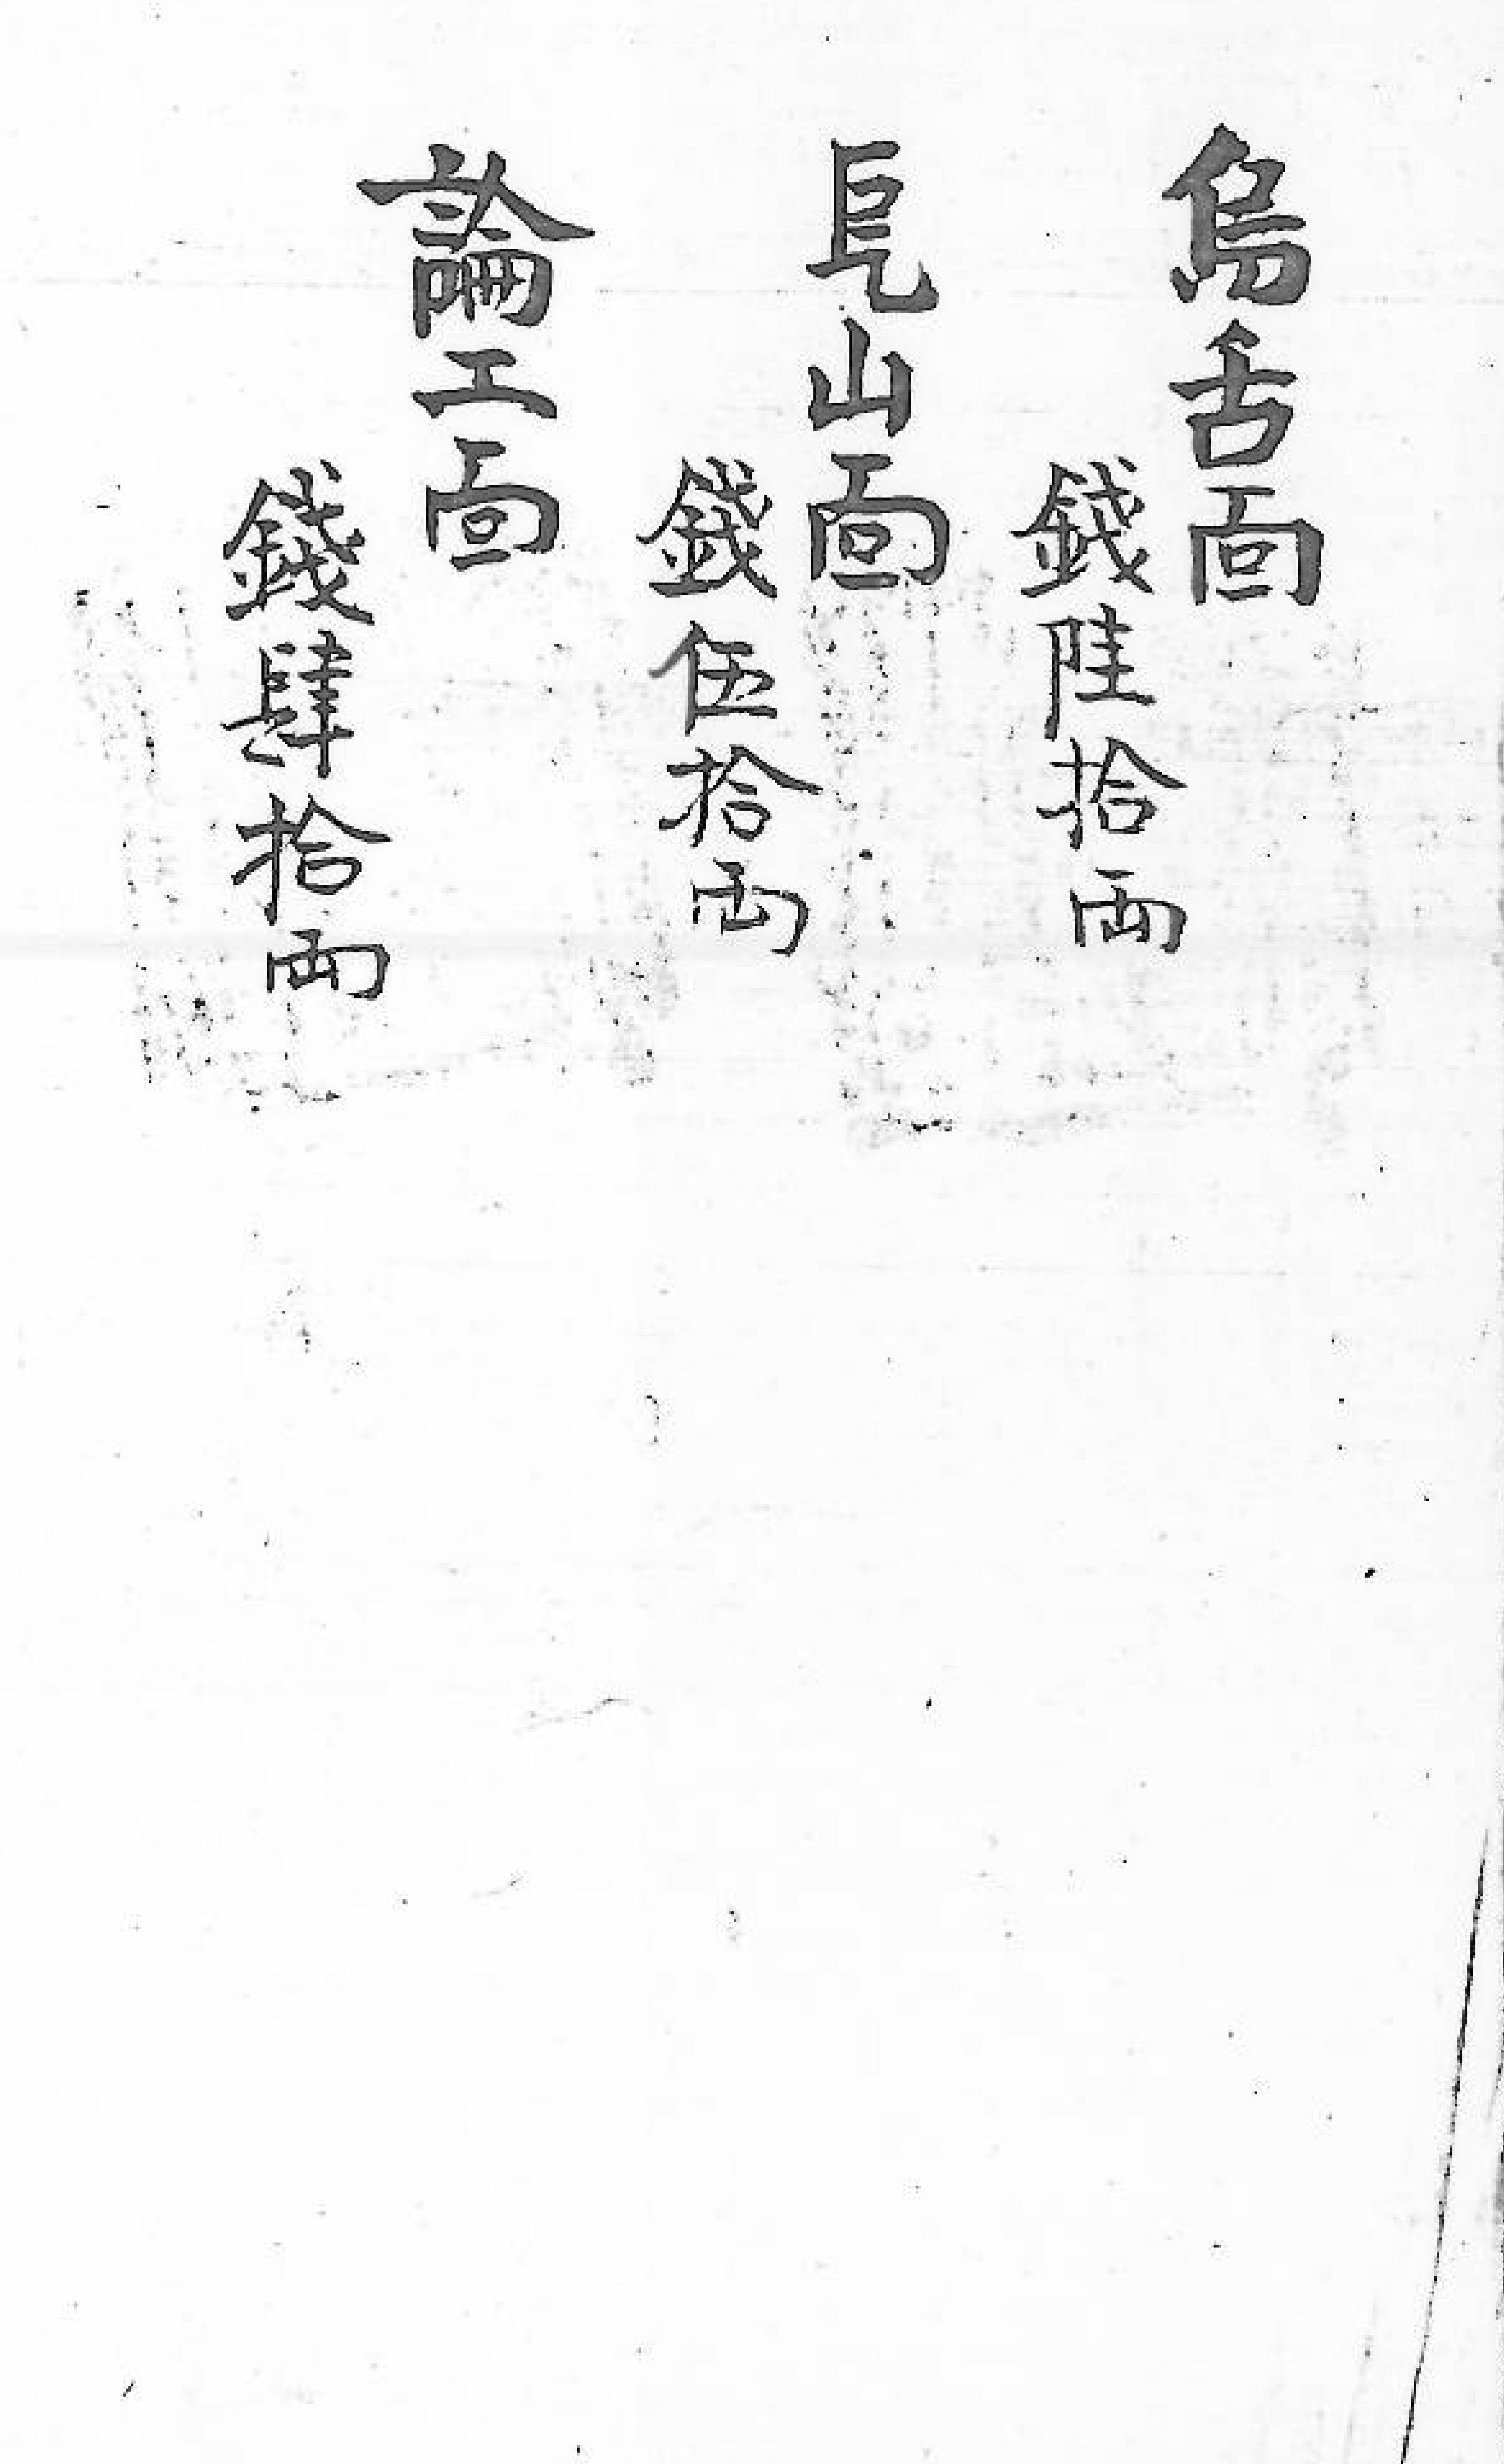 烏舌面
錢陸拾両
乬山面
錢伍拾両
論工面
錢肆拾両